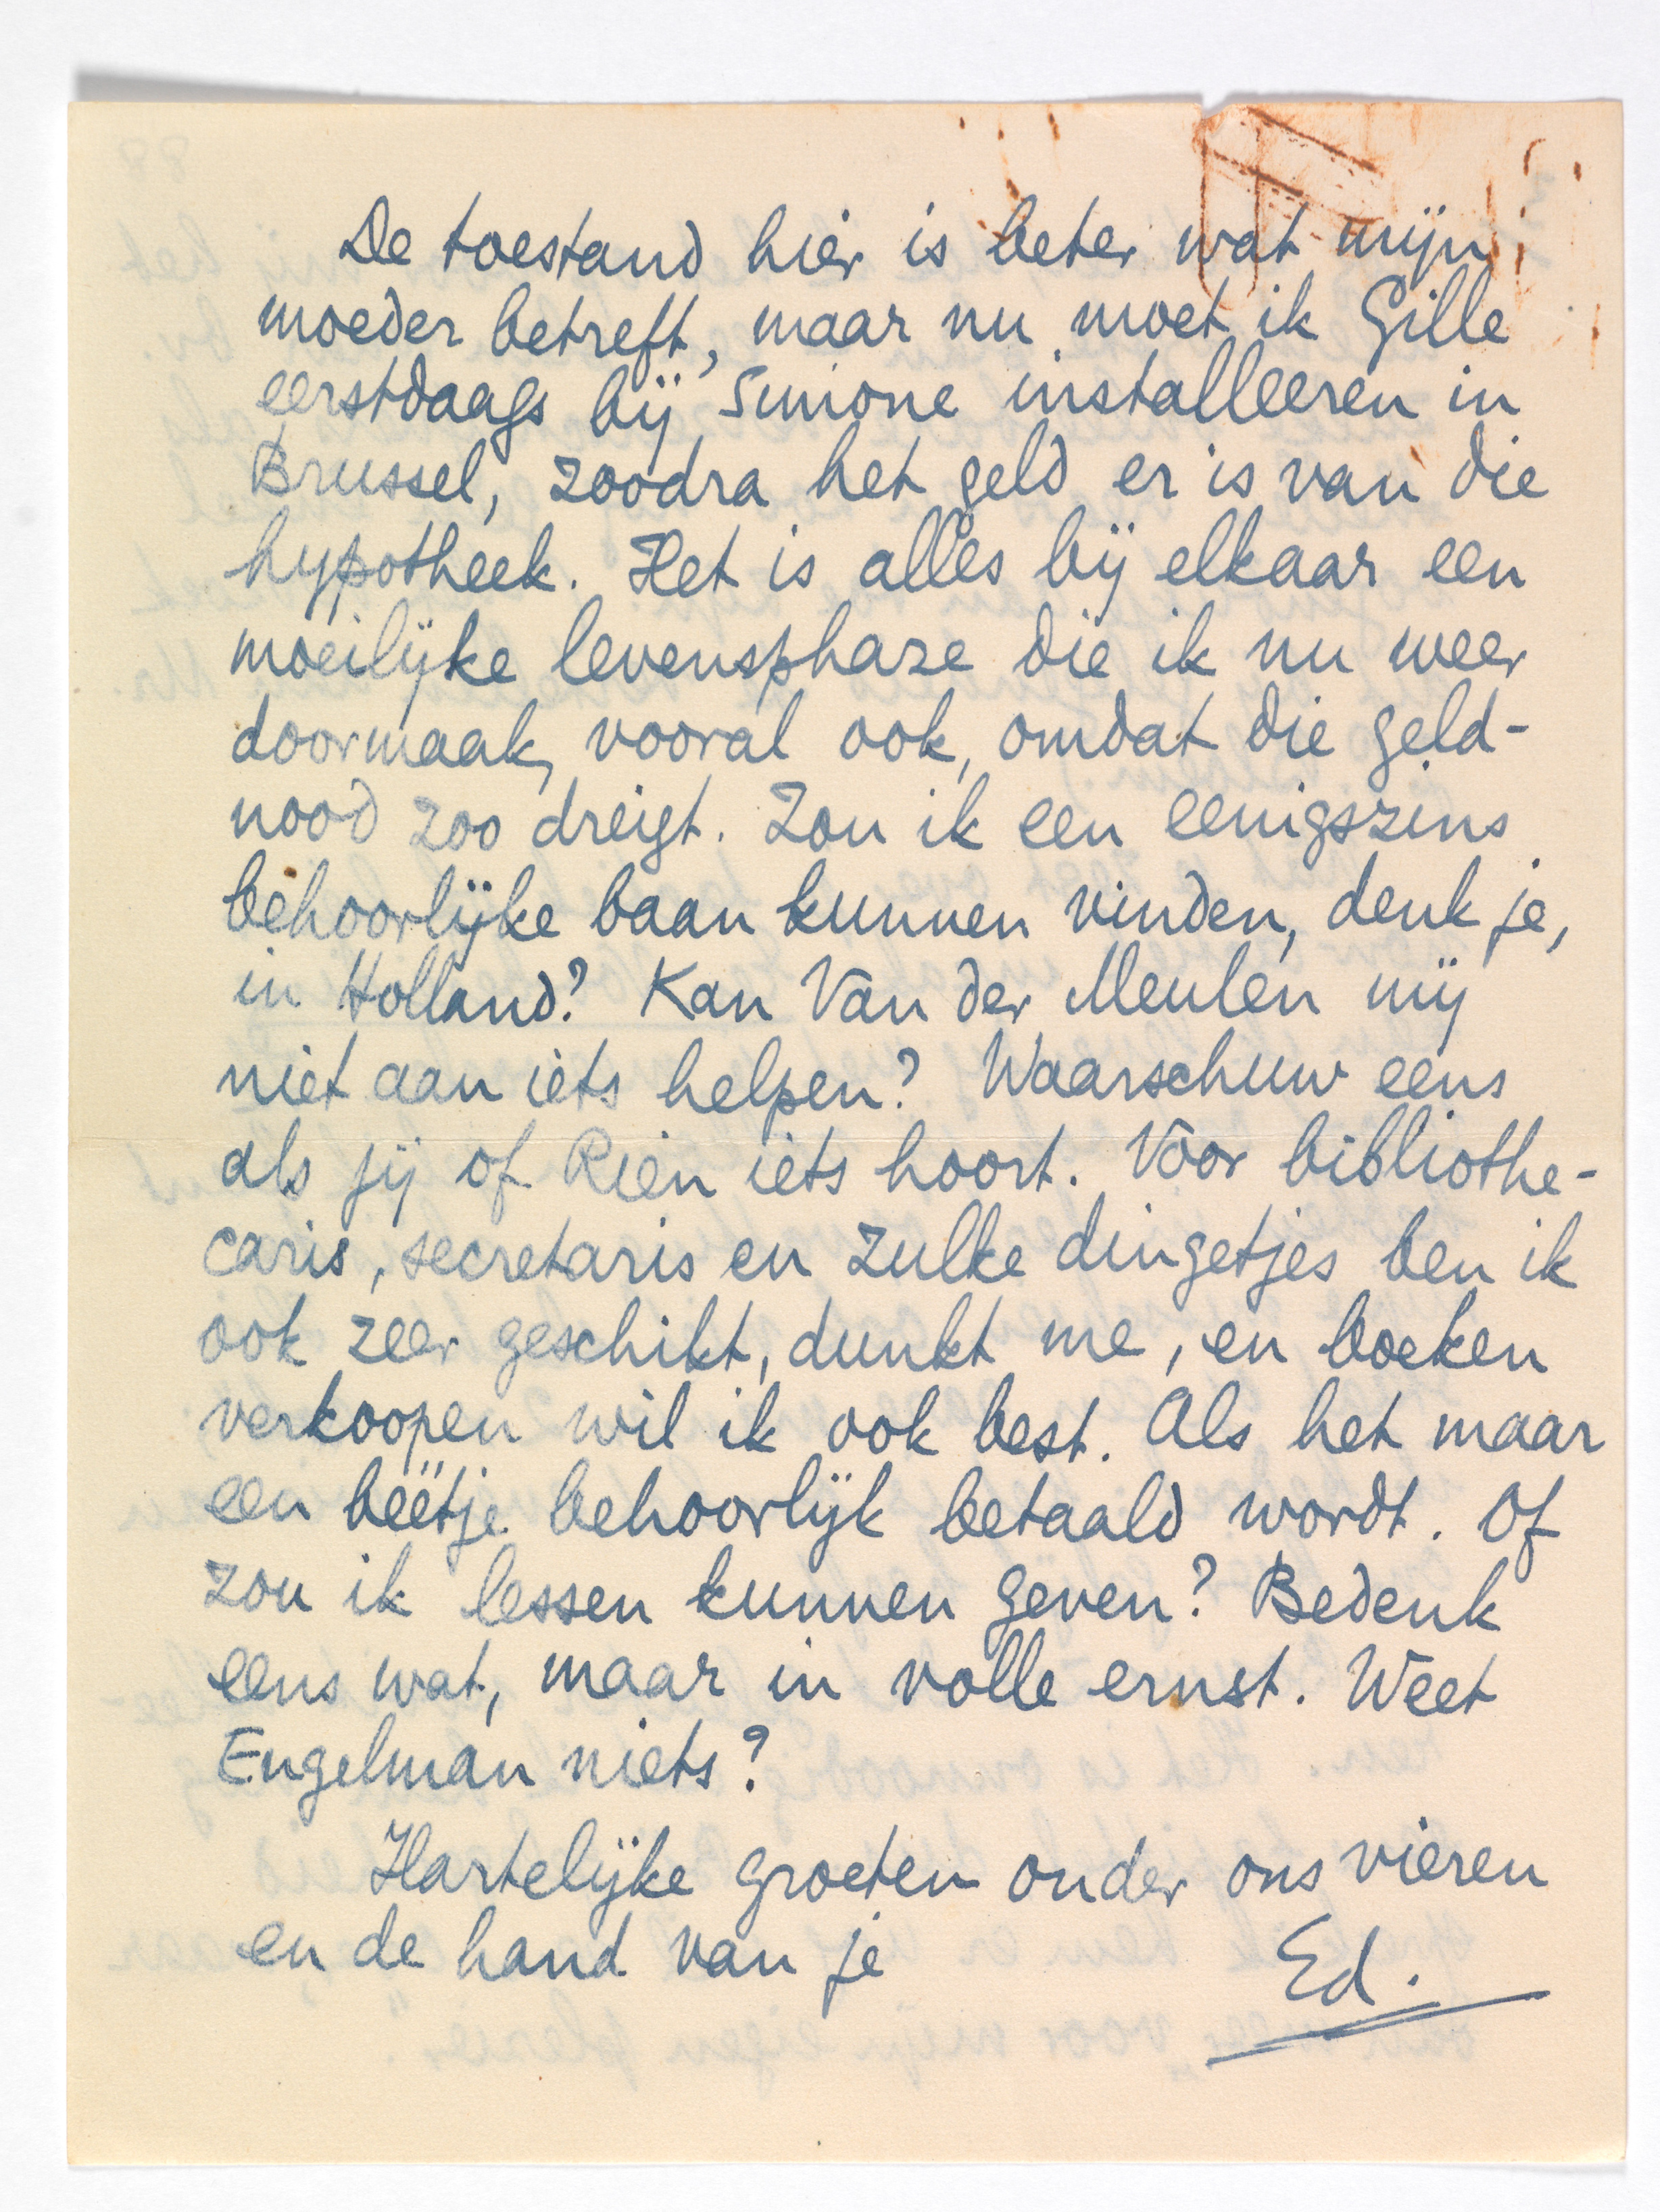 De toestand hier is beter wat mijn
moeder betreft, maar nu moet ik Gille
eerstdaags bij Simone installeeren in
Brussel, zoodra het geld er is van die
hypotheek. Het is alles bij elkaar een
moeilijke levensphaze die ik nu weer
doormaak, vooral ook, omdat die geld-
nood zoo dreigt. Zou ik een eenigszins
behoorlijke baan kunnen vinden, denk je,
in Holland? Kan Van der Meulen mij
niet aan iets helpen? Waarschuw eens
als jij of Rien iets hoort. Voor bibliothe-
caris, secretaris en zulke dingetjes ben ik
ook zeer geschikt, dunkt me, en boeken
verkoopen wil ik ook best. Als het maar
een beëtje behoorlijk betaald wordt. Of
zou ik lessen kunnen geven? Bedenk
eens wat, maar in volle ernst. Weet
Engelman niets?
Hartelijke groeten onder ons vieren
en de hand van je
Ed.